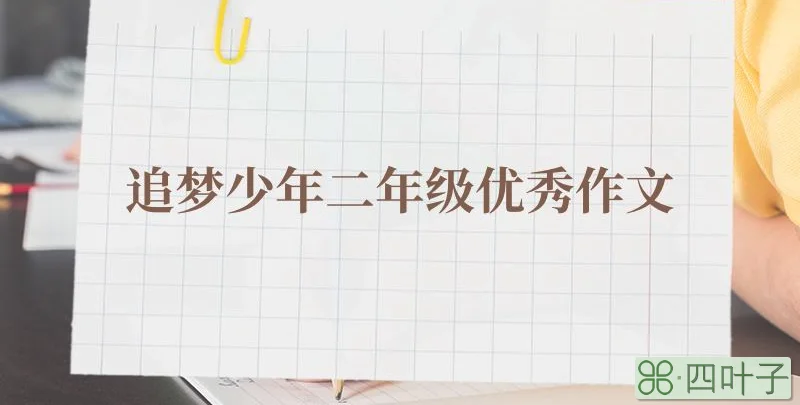 追梦少年二年级优秀作文
⌘·四叶子